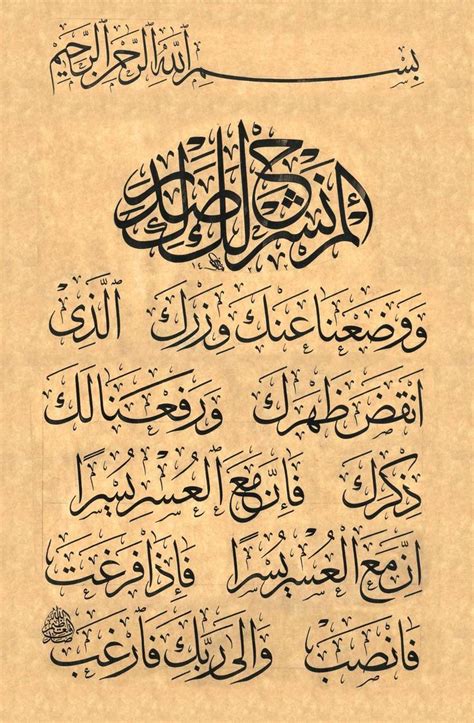 بِسْمِ ٱللَّهِ ٱلرَّحْمٰنِ ٱلرَّحِيمِ
اَلَمْ نَشْرَحْ لَكَ صَدْرَكَ
وَوَضَعْنَا عَنْكَ وِزْرَكَ الَّذِى
اَنْقَضَ ظَهْرَكَ وَرَفَعْنَا لَكَ
ذِكْرَكَ فَاِنَّ مَعَ الْعُسْرِ يُسْرًا
اِنَّ مَعَ الْعُسْرِ يُسْرًا فَاِذَا فَرَغْتَ
فَانْصَبْ وَاِلٰى رَبِّكَ فَارْغَبْ